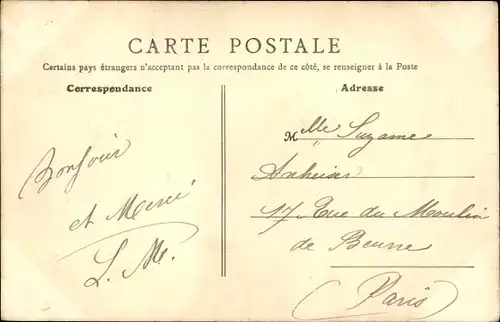 CARTE POSTALE
Certains pays étrangers n'acceptant pas la correspondance de ce côté, se renseigner à la Poste
Correspondance
Adresse
Bonjour
et Merci
L. M.
Mlle Suzanne
17 Rue du Moulin
de Beurre
(Paris)